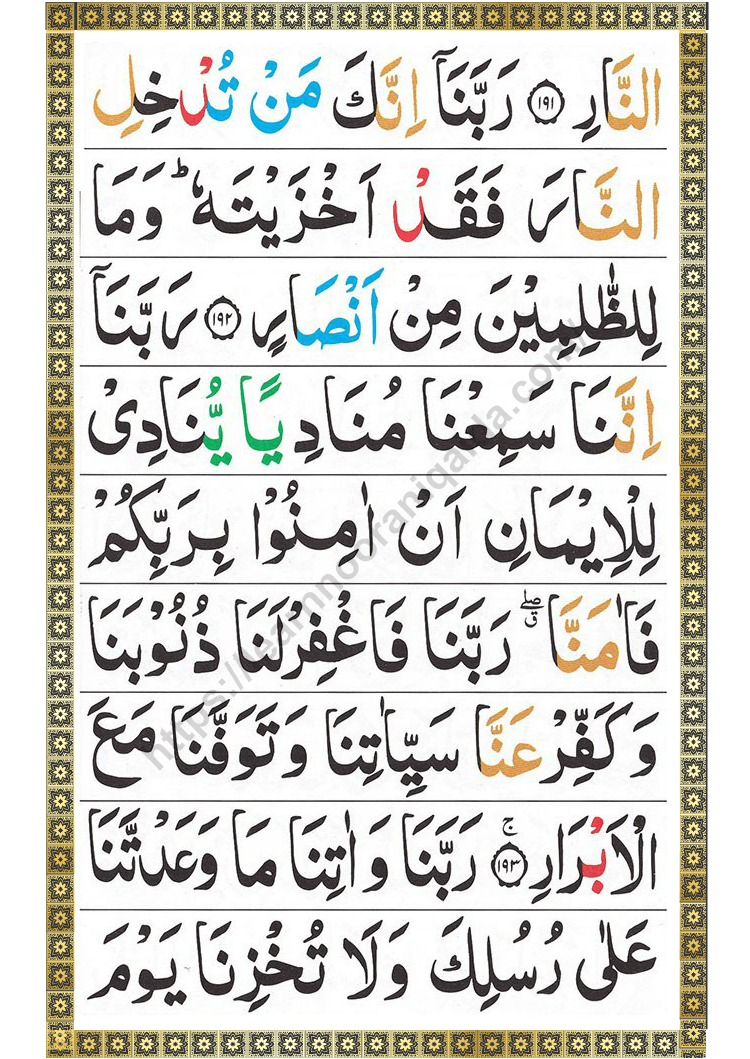 النَّارِ ﴿۱۹۱﴾ رَبَّنَاۤ اِنَّكَ مَنْ تُدْخِلِ
النَّارَ فَقَدْ اَخْزَيْتَهٗ ؕ وَمَا
لِلظّٰلِمِيْنَ مِنْ اَنْصَارٍ ﴿۱۹۲﴾ رَبَّنَاۤ
اِنَّنَا سَمِعْنَا مُنَادِيًا يُّنَادِىْ
لِلْاِيْمَانِ اَنْ اٰمِنُوْا بِرَبِّكُمْ
فَاٰمَنَّا ۖ ق رَبَّنَا فَاغْفِرْلَنَا ذُنُوْبَنَا
وَكَفِّرْ عَنَّا سَيِّاٰتِنَا وَتَوَفَّنَا مَعَ
الْاَبْرَارِ ۚ ﴿۱۹۳﴾ رَبَّنَا وَاٰتِنَا مَا وَعَدْتَّنَا
عَلٰى رُسُلِكَ وَلَا تُخْزِنَا يَوْمَ
https://learnnooraniqaida.com/